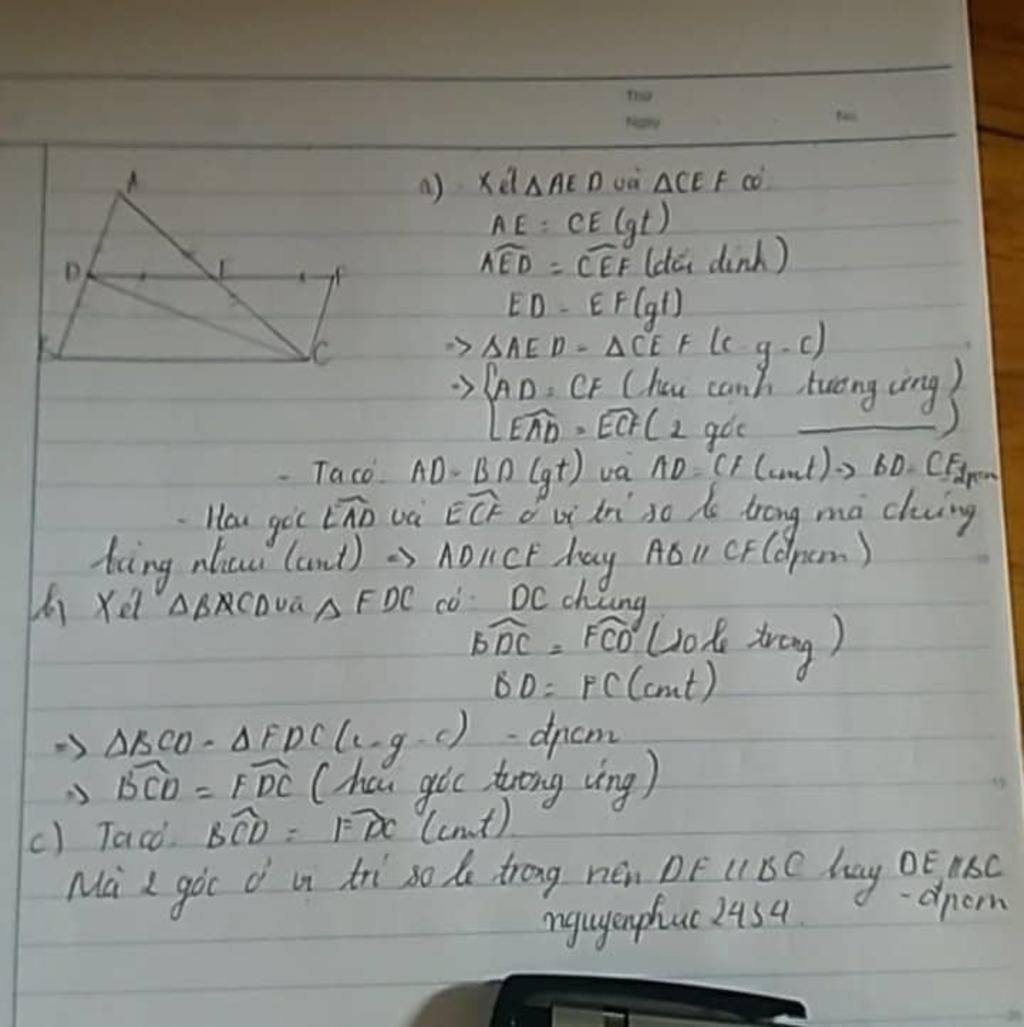 Thứ
Ngày No.
A
D E F
C
a) Xét ΔAED và ΔCEF có
AE = CE (gt)
AED = CEF (đối đỉnh)
ED = EF (gt)
=> ΔAED = ΔCEF (c-g-c)
=> AD = CF (hai cạnh tương ứng)
EAD = ECF (2 góc ———)
- Ta có: AD = BD (gt) và AD = CF (cmt) => BD = CF đpcm
- Hai góc EAD và ECF ở vị trí so le trong mà chúng
bằng nhau (cmt) => AD // CF hay AB // CF (đpcm)
b) Xét ΔBCD và ΔFDC có: DC chung
BDC = FCD (so le trong)
BD = FC (cmt)
=> ΔBCD = ΔFDC (c-g-c) - đpcm
=> BCD = FDC (hai góc tương ứng)
c) Ta có: BCD = FDC (cmt)
Mà 2 góc ở vị trí so le trong nên DF // BC hay DE // BC
- đpcm
nguyenphuc2434.